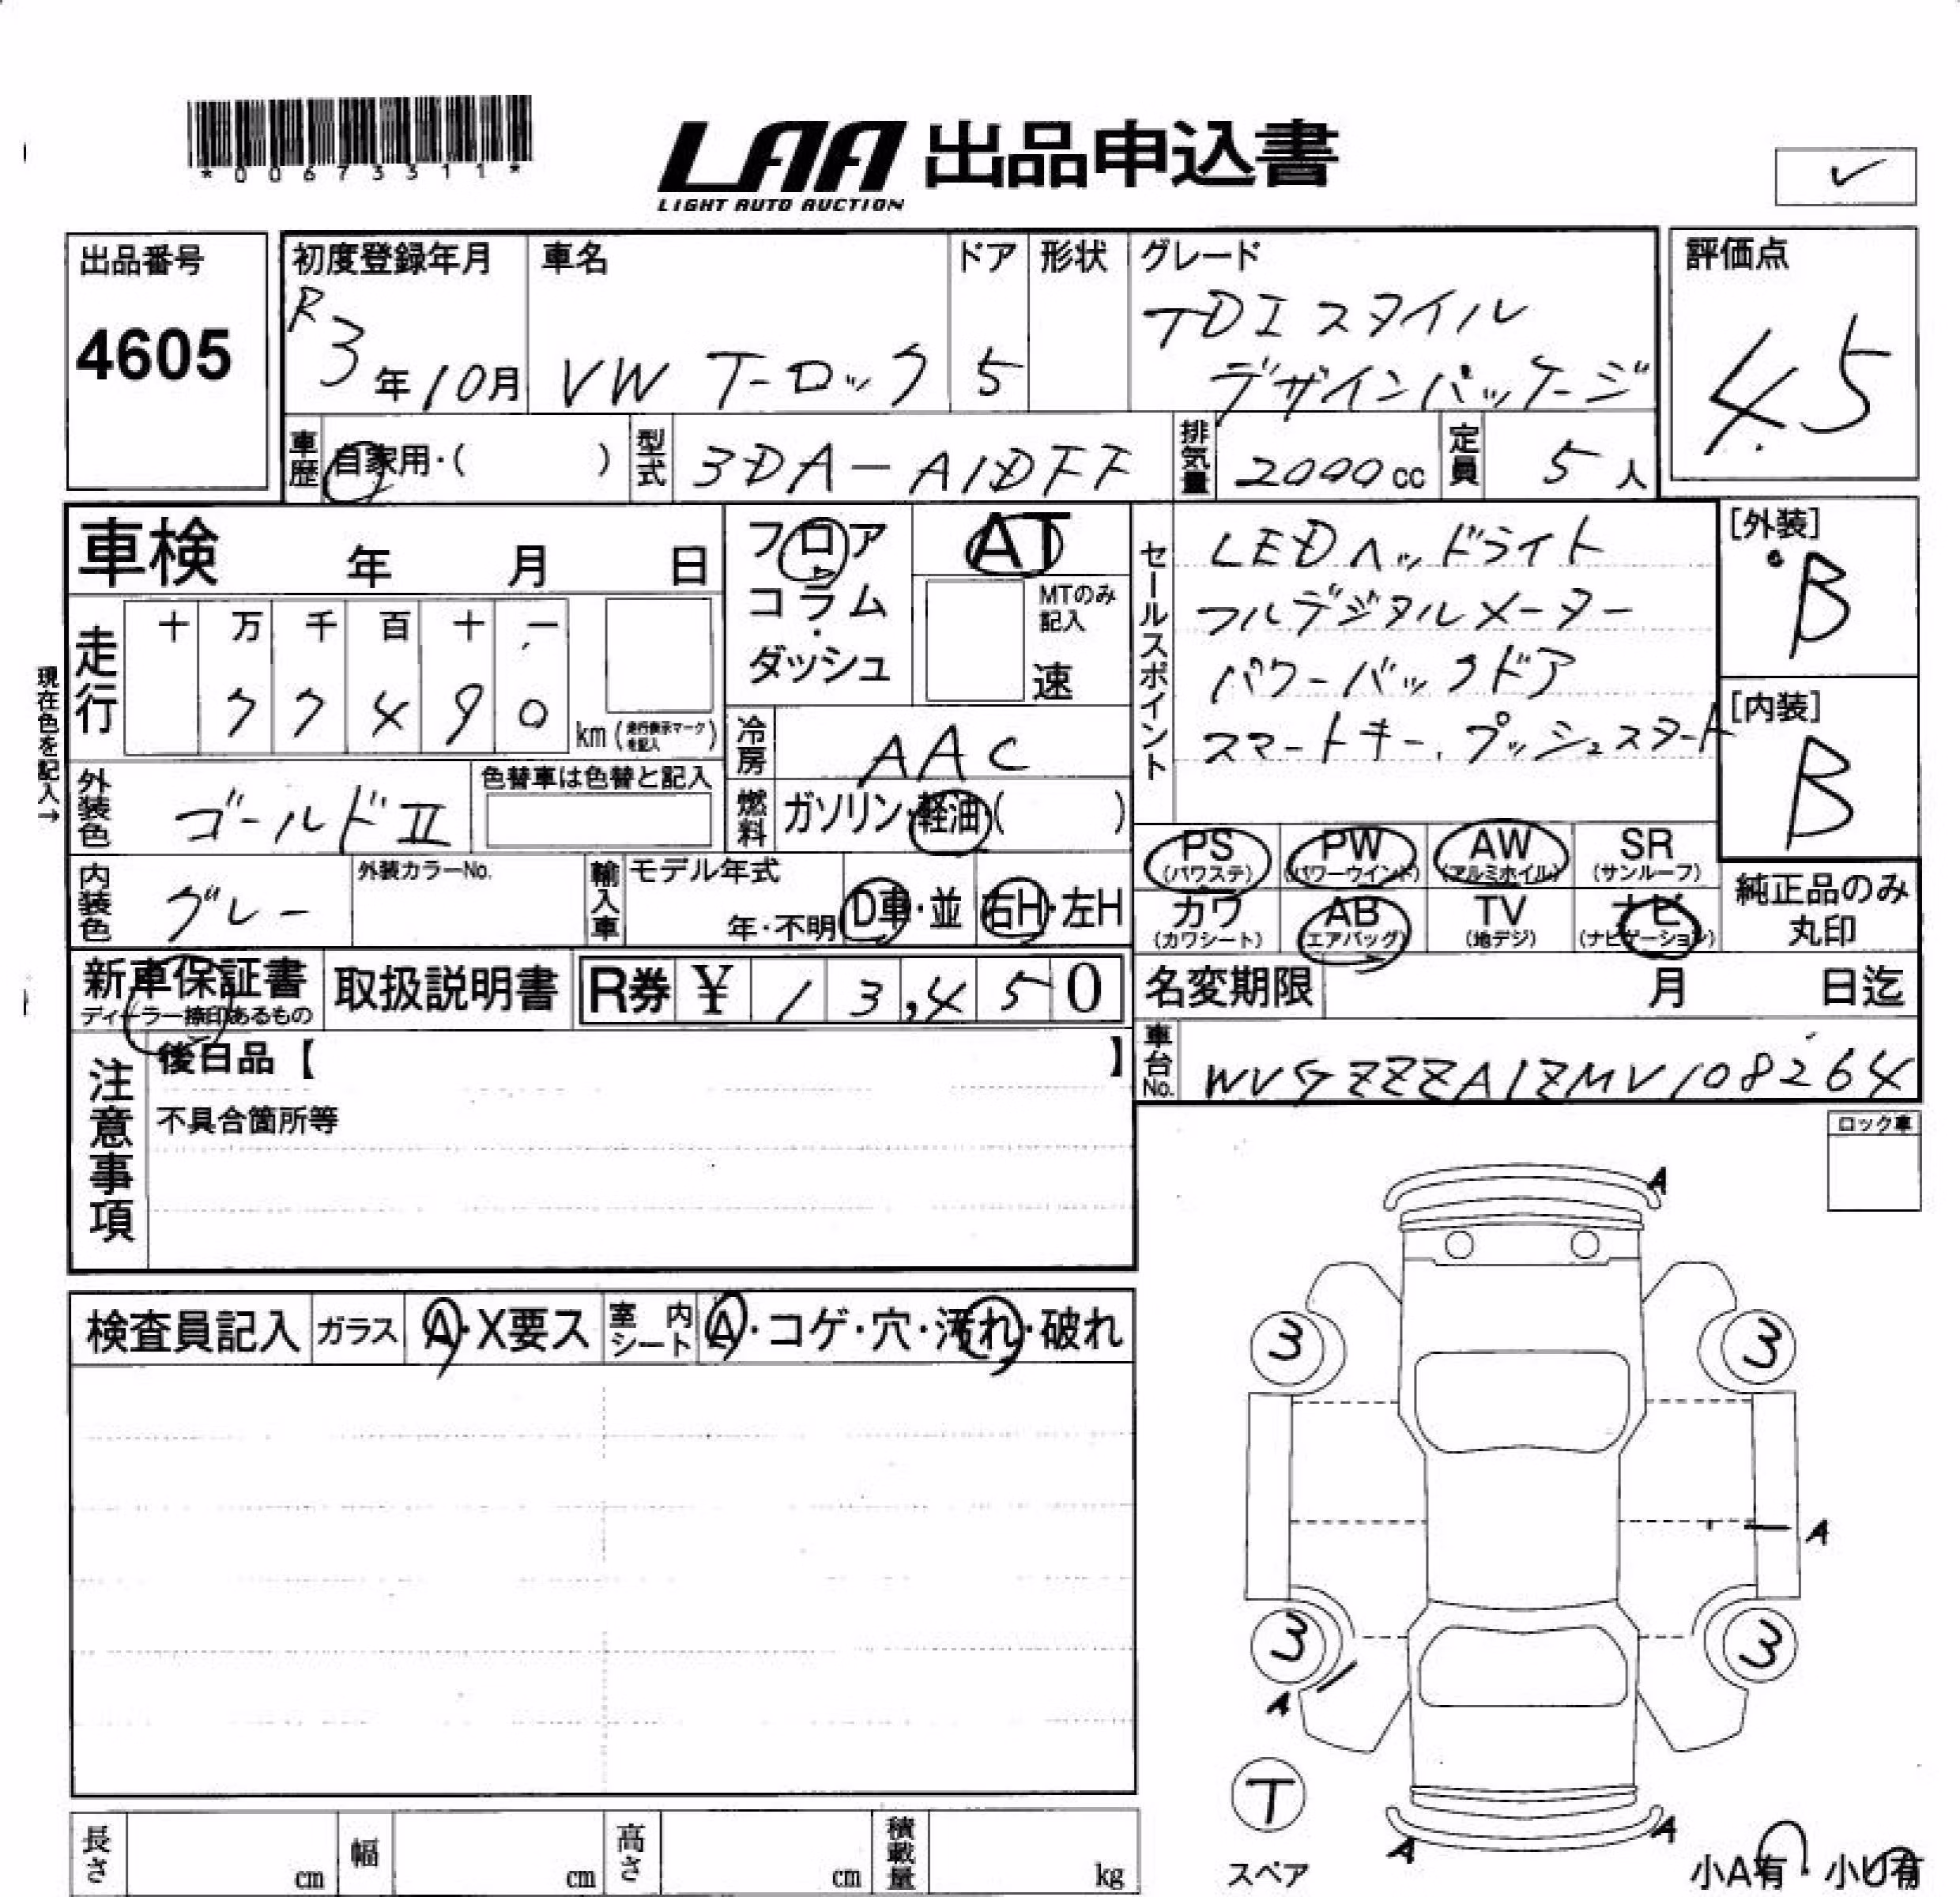 *00673311*
LAA 出品申込書
LIGHT AUTO AUCTION
✓
出品番号
4605
初度登録年月
R3年10月
車名
VW T-ロック
ドア
5
形状
グレード
TDI スタイル
デザインパッケージ
評価点
4.5
車歴
自家用・( )
型式
3DA-A1DFF
排気量
2000cc
定員
5人
車検 年 月 日
フロア
コラム
・
ダッシュ
AT
MTのみ
記入
速
セールスポイント
LEDヘッドライト
フルデジタルメーター
パワーバックドア
スマートキー、プッシュスタート
[外装]
B
[内装]
B
現在色を記入→
走行
十 万 千 百 十 一
7 7 4 9 0
km(走行表示マークを記入)
冷房
AAC
外装色
ゴールドII
色替車は色替と記入
燃料
ガソリン・軽油( )
PS
(パワステ)
PW
(パワーウインド)
AW
(アルミホイル)
SR
(サンルーフ)
内装色
グレー
外装カラーNo.
輸入車
モデル年式
年・不明
D車・並
右H・左H
カワ
(カワシート)
AB
(エアバッグ)
TV
(地デジ)
ナビ
(ナビゲーション)
純正品のみ
丸印
新車保証書
ディーラー捺印あるもの
取扱説明書
R券 ¥ 13,450
名変期限 月 日迄
車台No.
WVGZZZA1ZMV108264
注意事項
後日品【 】
不具合箇所等
ロック車
検査員記入
ガラス
A・X要ス
室内
シート
A・コゲ・穴・汚れ・破れ
A
3
3
A
3
3
A
T
スペア
A
A
小A有・小U有
長さ cm
幅 cm
高さ cm
積載量 kg